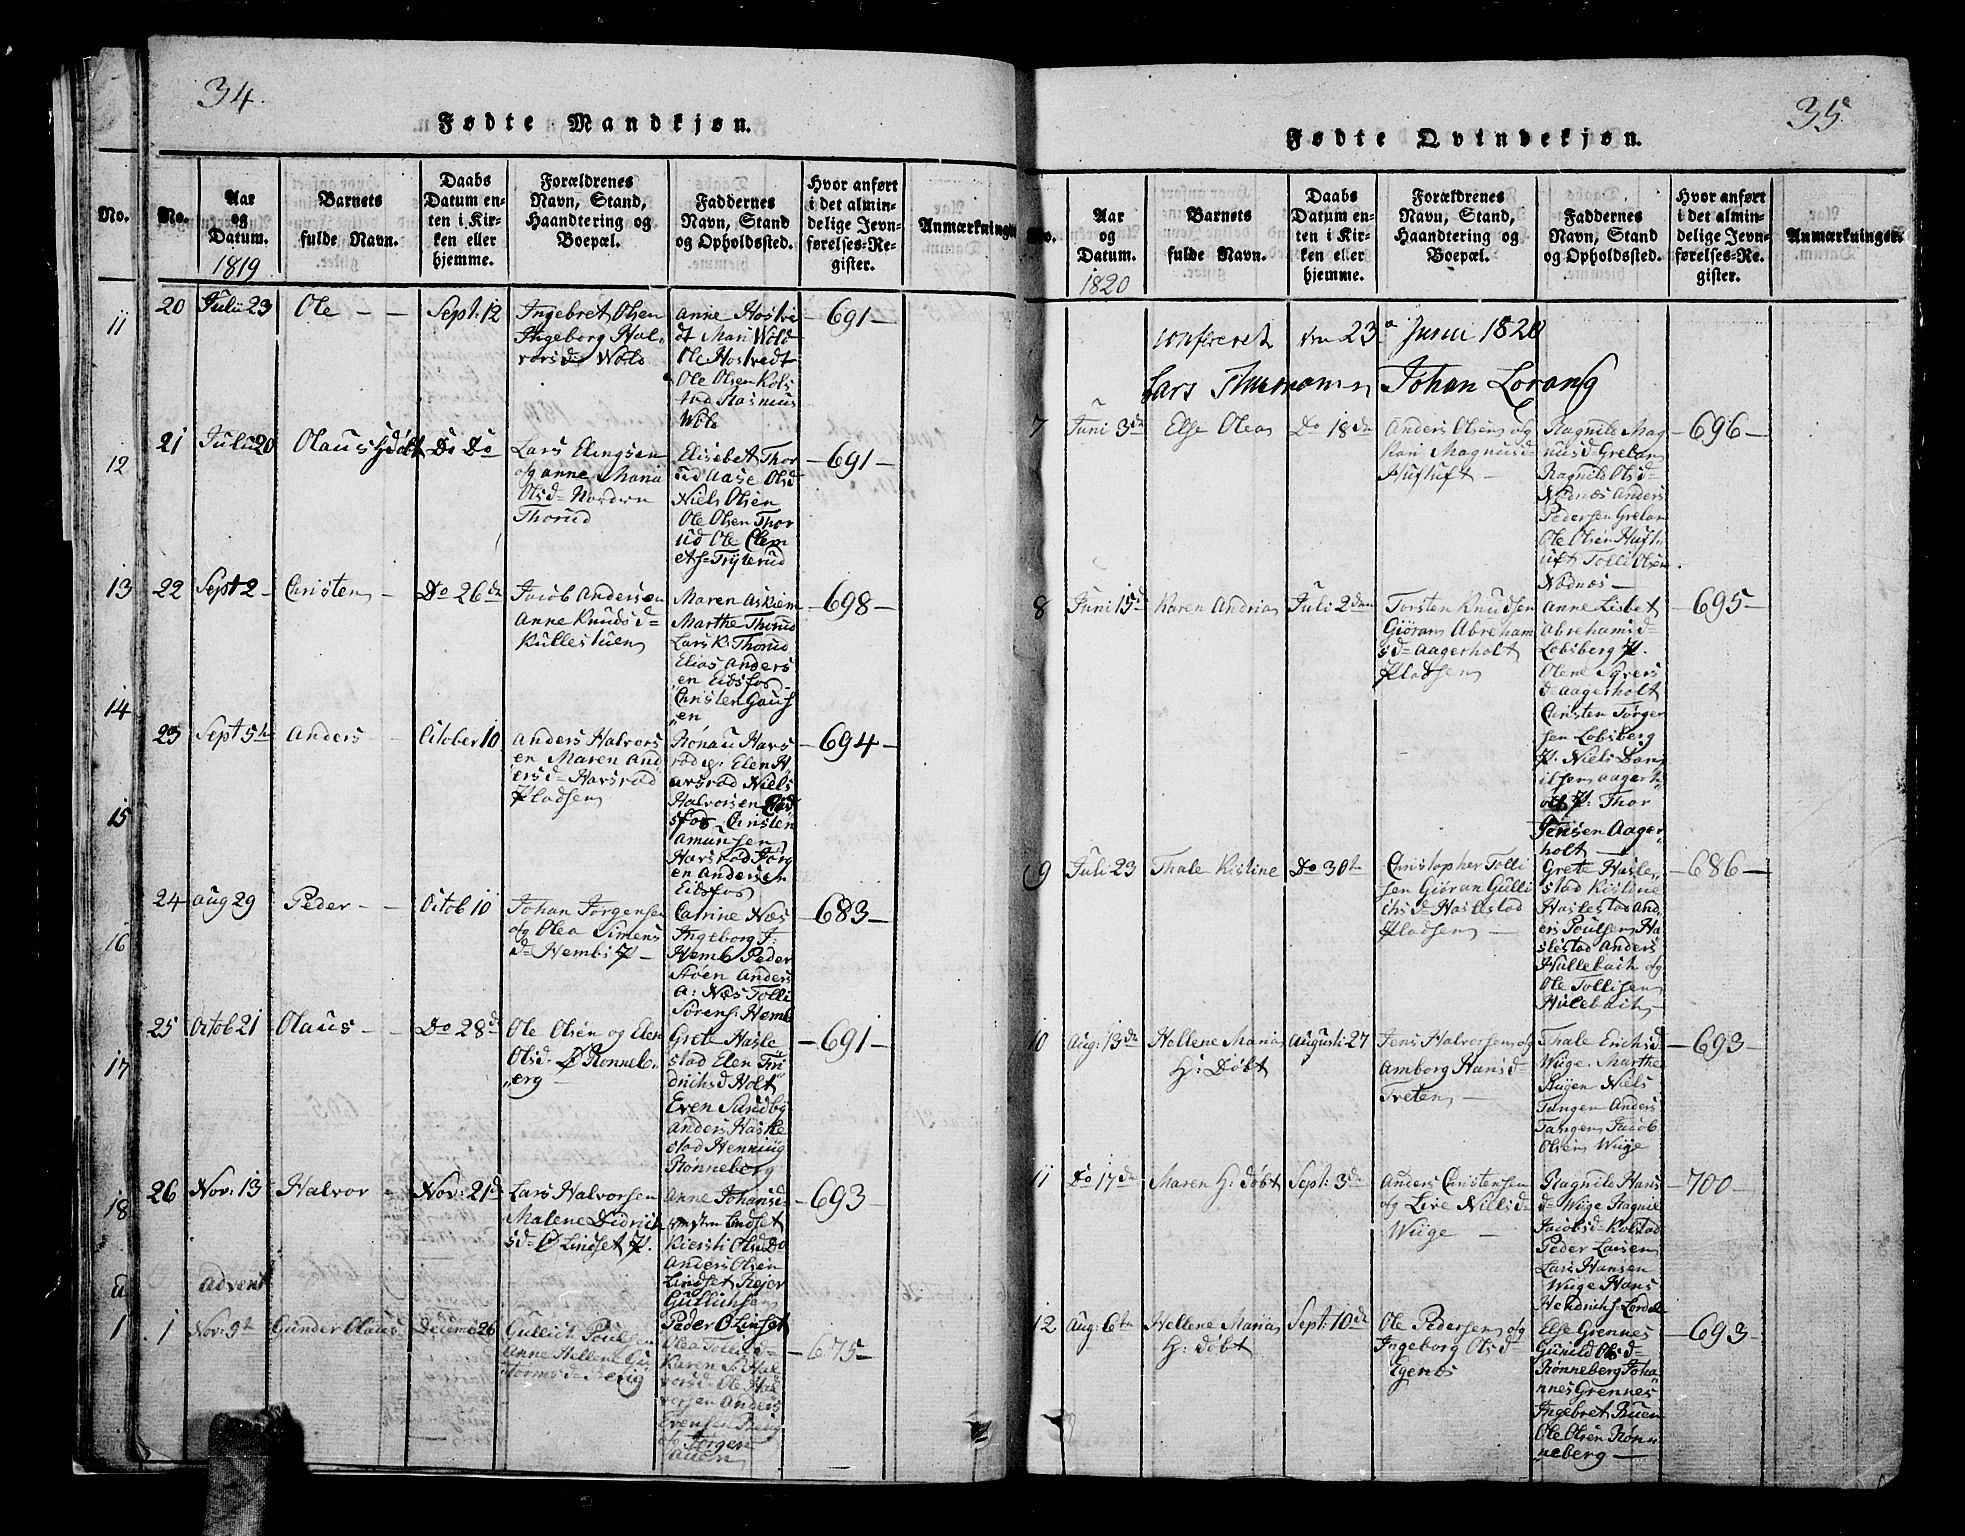 34.
Fødte Mandkjøn.
No.
No.
Aar
og
Datum.
1819
Barnets
fulde Navn.
Daabs
Datum en-
ten i Kir-
ken eller
hjemme.
Forældrenes
Navn, Stand,
Haandtering og
Boepæl.
Faddernes
Navn, Stand
og Opholdssted.
Hvor anført
i det almin-
delige Jevn-
førelses-Re-
gister.
Anmærkninger
11
12
13
14
15
16
17
18
1
20
Julii 23
Ole
Sept: 12
Ingebret Olsen
Ingeborg Hal-
vorsd= Wold
Anne Hostve
dt Mari Wold
Ole Hostvedt
Ole Olsen Kols
tad Rasmus
Wold
- 691 -
21
Julii 20
Olaus Hdøbt
Do Do
Lars Elingsen
og Anne Maria
Olsd= Nordre
Thorud
Elisebet Thor
ud Aase Olsd
Niels Olsen
Ole Olsen Thor
ud Ole Clem
ets= Tryterud
- 691 -
22
Sept 2 -
Christen
Do 26de
Jacob Andersen
Anne Knudsd=
Kullestuen
Maren Askiem
Marthe Thorud
Lars K. Thorud
Elias Anders
en Eidsfos -
Christen Gaus
en
- 698 -
23
Sept 5te
Anders
October 10
Anders Halvors
en Maren And
ersd= Harsrud
Pladsen
Rønau Hars
rud g: Elen H
arsrud Niels
Halvorsen Eid
sfos Christen
Amunsen
Harsrud Jørg
en Andersen
Eidsfos
- 694 -
24
Aug 29
Peder - -
Octob 10
Johan Jørgensen
og Olea Simens
d= Hembs P -
Catrine Næs
Ingeborg J:
Hemb Peder
Støen Anders
A: Næs Tolli
Sørens: Hemb
- 683 -
25
Octob 21
Olaus -
Do 28de
Ole Olsen og Elen
Olsd. Ø Rønneb
erg -
Grete Hasle
stad Elen Fri
drichsd Holt
Even Sundby
Anders Hasle
stad Henning
Rønneberg
- 691 -
26
Nov: 13
Halvor
Nov: 21de
Lars Halvorsen
Malene Didrich
sd= Ø Lindset P.
Anne Johansd=
Lindset
Kiersti Olsd Do
Anders Olsen
Lindset Rejer
Gullichsen
Peder Ø Linset
- 693 -
Advent
1
Nov: 9de
Gunder Olaus
Decemb 26
Gullich Poulsen
Anne Hellene Gu
ttormsd= Revig
Olea Tollisd=
Karen S. Hal
vorsd= Ole Hal
vorsen Anders
Evensen Revig
og Jørgen
- 675 -
35.
Fødte Qvindekjøn.
No.
Aar
og
Datum.
1820
Barnets
fulde Navn.
Daabs
Datum en-
ten i Kir-
ken eller
hjemme.
Forældrenes
Navn, Stand,
Haandtering og
Boepæl.
Faddernes
Navn, Stand
og Opholdssted.
Hvor anført
i det almin-
delige Jevn-
førelses-Re-
gister.
Anmærkninger.
confereret den 23de Junii 1820
Lars Thurmann Johan Lorang
7
Juni 3de
Else Olea
Do 18de
Anders Olsen og
Kari Magnusd=
Hufluft -
Ragnild Mag
nusd= Grelan
Ragnild Olsd=
Nødnæs Anders
Pedersen Grelan
Ole Olsen Hufl
uft Tolli Olsen
Nødnæs -
- 696 -
8
Juni 15de
Karen Andria
Juli 2den
Torsten Knudsen
Giøran Abreham
sd= Aagerholt
Pladsen
Anne Lisbet
Abrehamsd=
Lobsberg P.
Olene Syvers
d= Aagerholt
Christen Torger
sen Lobsberg
P. Niels Dan
ilsen Aagerh
olt P: Thor
Jensen Aager
holt -
- 695 -
9
Juli 23
Thale Kistine
Do 30te
Christopher Tolli
sen Giøran Gulli
chsd= Haslestad
Pladsen -
Grete Hasle
stad Kistine
Haslestad And
ers Poulsen Ha
slestad Anders
Hullebach og
Ole Tollisen
Hulebach -
- 686 -
10
Aug: 13de
Hellene Maria
H: Døbt
Augusti 27
Jens Halvorsen og
Amborg Hansd=
Treten -
Thale Erichsd
Wiige. Marthe
Bugen Niels
Tangen Anders
Tangen Jacob
Olsen Wiige
- 693 -
11
Do 17de
Maren H: døbt
Sept: 3de
Anders Christensen
og Live Nielsd=
Wiige -
Ragnild Hans
d= Wiige Ragnild
Jacobsd= Kolstad
Peder Larsen
Lars Hansen
Wiige Hans
Hendrichs: Lordal
- 700 -
12
Aug: 6te
Hellene Maria
H: døbt
Sept: 10de
Ole Pedersen og
Ingeborg Olsd=
Egenes
Else Grennes
Gunild Olsd=
Rønneberg Joha
nnes Grennes
Ingebret Buen
Ole Olsen Rønn
eberg -
- 693 -